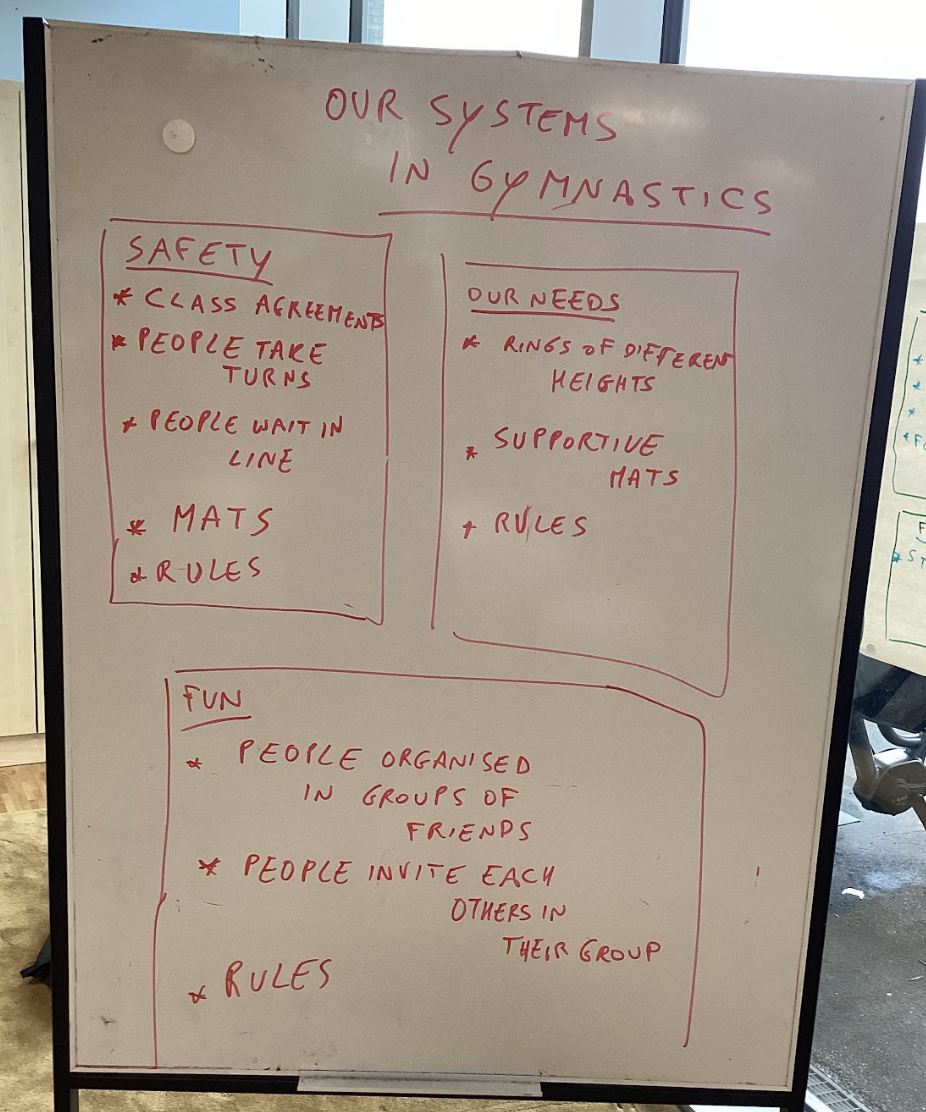 OUR SYSTEMS
IN GYMNASTICS
SAFETY
* CLASS AGREEMENTS
* PEOPLE TAKE
TURNS
* PEOPLE WAIT IN
LINE
* MATS
* RULES
OUR NEEDS
* RINGS OF DIFFERENT
HEIGHTS
* SUPPORTIVE
MATS
* RULES
FUN
* PEOPLE ORGANISED
IN GROUPS OF
FRIENDS
* PEOPLE INVITE EACH
OTHERS IN
THEIR GROUP
* RULES